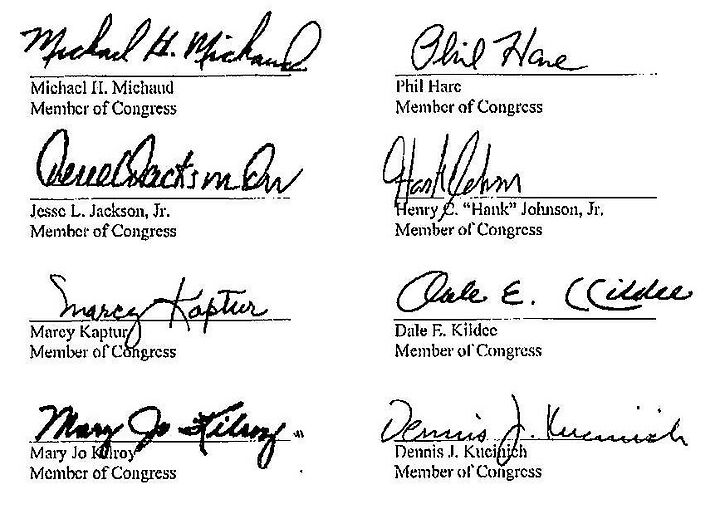 Michael H. Michaud
Michael H. Michaud
Member of Congress
Phil Hare
Phil Hare
Member of Congress
Jesse L. Jackson, Jr.
Member of Congress
Hank Johnson
Henry C. "Hank" Johnson, Jr.
Member of Congress
Marcy Kaptur
Marcy Kaptur
Member of Congress
Dale E. Kildee
Dale E. Kildee
Member of Congress
Mary Jo Kilroy
Mary Jo Kilroy
Member of Congress
Dennis J. Kucinich
Dennis J. Kucinich
Member of Congress